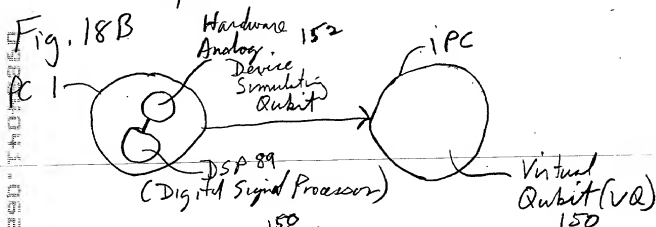 Fig. 18B
Hardware
Analog. 152
Device
Simulating
Qubit
PC 1
iPC
DSP 89
(Digital Signal Processor)
Virtual
Qubit (VQ)
150
150